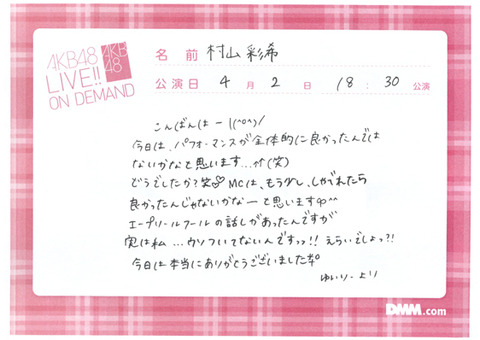 AKB48
LIVE!!
ON DEMAND
AKB
48
名前 村山彩希
公演日 4月2日 18:30 公演
こんばんはー!(^o^)/
今日は、パフォーマンスが全体的に良かったんでは
ないかなと思います…↑↑(笑)
どうでしたか?笑 MCは、もう少し、しゃべれたら
良かったんじゃないかなーと思います^^
エープリールフールの話しがあったんですが
実は私…ウソついてないんですッ!!えらいでしょっ?!
今日は本当にありがとうございました
ゆいりーより
DMM.com